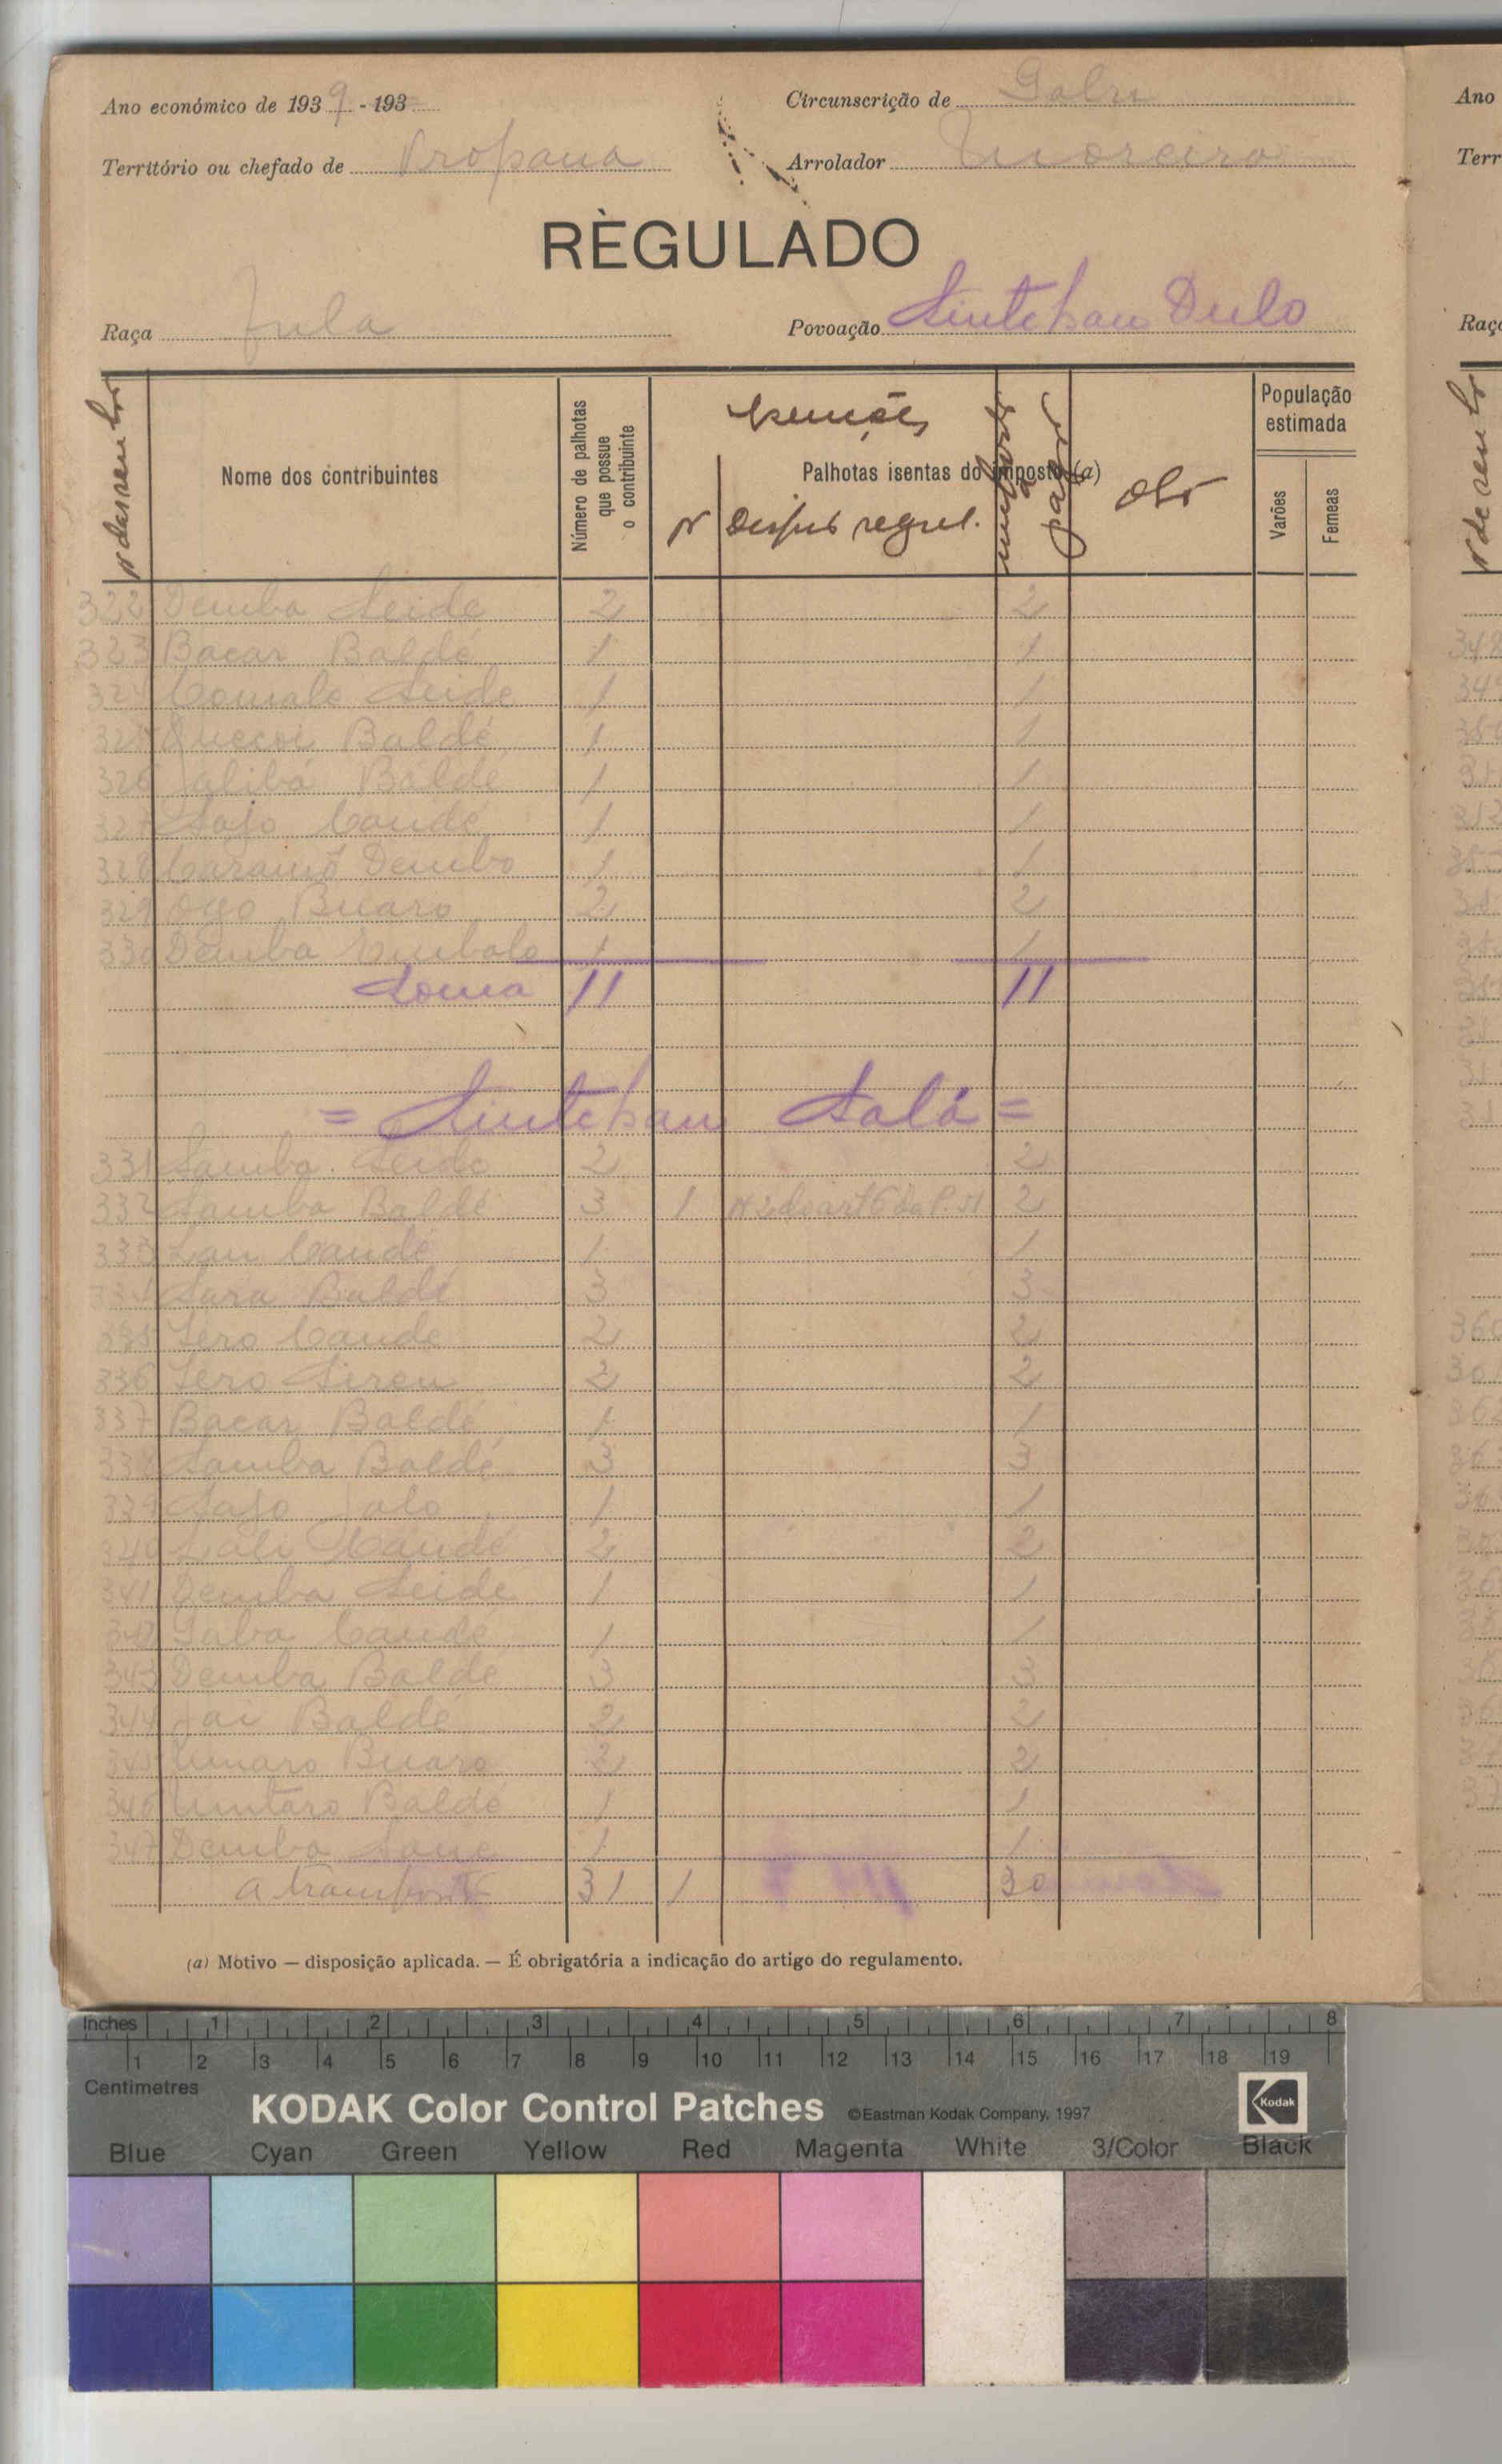 Ano económico de 1939 - 193
Circunscrição de Gabu
Território ou chefado de Propana
Arrolador Moreira
RÈGULADO
Raça Fula
Povoação Sintcham Dulo
Nome dos contribuintes
Número de palhotas que possue o contribuinte
Isenções
Palhotas isentas do imposto (a)
Nº
regul.
Obs
População estimada
Varões
Femeas
322 Demba Seide 2 2
323 Bacar Baldé 1 1
324 Seide 1 1
325 Baldé 1 1
326 Jalibá Baldé 1 1
327 Sajo Candé 1 1
328 Caramó Dembo 1 1
329 Buaro 2 2
330 Demba Embalo 1 1
Soma 11 11
= Sintcham Salá =
331 Samba Seide 2 2
332 Samba Baldé 3 1 Nº 2 do art 6 do 2
333 Candé 1 1
334 Sara Baldé 3 3
335 Sero Cande 2 2
336 Sero Sireu 2 2
337 Bacar Baldé 1 1
338 Samba Baldé 3 3
339 Sajo Jalo 1 1
340 Candé 2 2
341 Demba Seide 1 1
342 Candé 1 1
343 Demba Baldé 3 3
344 Baldé 2 2
345 Umaro Buaro 2 2
346 Baldé 1 1
347 Demba Sane 1 1
A transporte 31 1 30
(a) Motivo — disposição aplicada. — É obrigatória a indicação do artigo do regulamento.
Inches 1 2 3 4 5 6 7 8
1 2 3 4 5 6 7 8 9 10 11 12 13 14 15 16 17 18 19
Centimetres
KODAK Color Control Patches ©Eastman Kodak Company, 1997 Kodak
Blue Cyan Green Yellow Red Magenta White 3/Color Black